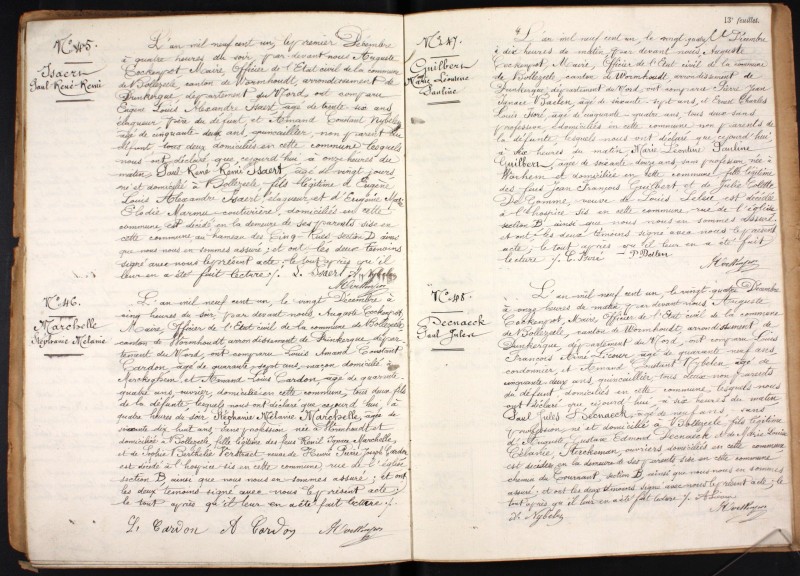 N.° 45.
Isaert
Paul René Remi
L'an mil neuf cent un, le premier Décembre
à quatre heures du soir par devant nous Auguste
Cockenpot Maire, Officier de l'Etat civil de la commune
de Bollezeele, canton de Wormhoudt, arrondissement de
Dunkerque département du Nord, ont comparu
Eugène Louis Alexandre Isaert, âgé de trente six ans
élagueur, père du défunt, et Amand Constant Nybelen
âgé de cinquante deux ans, quincailler, non parent du
défunt, tous deux domiciliés en cette commune, lesquels
nous ont déclaré que cejourd'hui à onze heures du
matin, Paul René Remi Isaert, âgé de vingt jours,
né et domicilié à Bollezeele, fils légitime d'Eugène
Louis Alexandre Isaert, élagueur, et d'Eugénie
Elodie couturière, domiciliés en cette
commune, est décédé en la demeure de ses parents sise en
cette commune au hameau des Cinq-Rues section D ainsi
que nous nous en sommes assuré; et ont les deux témoins
signé avec nous le présent acte, le tout après qu'il
leur en a été fait lecture ./.
N.° 46.
Marchelle
Stéphanie Mélanie
L'an mil neuf cent un, le vingt Décembre à
cinq heures du soir, par devant nous, Auguste Cockenpot
Maire, Officier de l'Etat civil de la commune de Bollezeele,
canton de Wormhoudt, arrondissement de Dunkerque dépar-
tement du Nord, ont comparu Louis Amand Constant
Cardon, âgé de quarante-sept ans, maçon domicilié à
Merckeghem et Amand Louis Cardon, âgé de quarante
quatre ans, ouvrier domicilié en cette commune, tous deux fils
de la défunte, lesquels nous ont déclaré que cejourd'hui à
quatre heures du soir Stéphanie Mélanie Marchelle, âgée de
soixante dix huit ans sans profession née à Wormhoudt et
domiciliée à Bollezeele, fille légitime des feus Marchelle,
et de Sophie Verstraet, veuve de Pierre Joseph Cardon
est décédée à l'hospice sis en cette commune rue de l'église
section B, ainsi que nous nous en sommes assuré; et ont
les deux témoins signé avec nous le présent acte;
le tout après qu'il leur en a été fait lecture ./.
L. Cardon A Cardon
13e feuillet.
N.° 47.
Guilbert
Marie Léontine
Pauline
L'an mil neuf cent un, le vingt quatre Décembre
à dix heures du matin, par devant nous, Auguste
Cockenpot, Maire, Officier de l'Etat civil de la commune
de Bollezeele, canton de Wormhoudt, arrondissement de
Dunkerque, département du Nord, ont comparu Pierre Jean
Ignace Baelen, âgé de soixante sept ans, et Ernest Charles
Louis âgé de cinquante-quatre ans, tous deux sans
profession, domiciliés en cette commune, non parents de
la défunte, lesquels nous ont déclaré que cejourd'hui
à six heures du matin, Marie Léontine Pauline
Guilbert, âgée de soixante douze ans sans profession, née à
Warhem et domiciliée en cette commune, fille légitime
des feus Jean François Guilbert et de Julie Colette
veuve de Louis est décédée
à l'hospice sis en cette commune rue de l'église
section B, ainsi que nous nous en sommes assuré;
et ont les deux témoins signé avec nous le présent
acte; le tout après qu'il leur en a été fait
lecture ./. P Baelen
N.° 48.
Decnaeck
Paul Jules
L'an mil neuf cent un, le vingt-quatre Décembre
à onze heures du matin, par devant nous Auguste
Cockenpot, Maire, Officier de l'Etat civil de la commune
de Bollezeele, canton de Wormhoudt, arrondissement de
Dunkerque département du Nord, ont comparu Louis
François âgé de quarante neuf ans,
cordonnier et Amand Constant Nybelen âgé de
cinquante deux ans, quincailler, tous deux non parents
du défunt, domiciliés en cette commune, lesquels nous
ont déclaré que cejourd'hui, à six heures du matin
Paul Jules Decnaeck, âgé de neuf ans, sans
profession, né et domicilié à Bollezeele, fils légitime
d'Auguste Gustave Edmond Decnaeck et de Marie Louise
ouvriers domiciliés en cette commune
est décédé en la demeure de ses parents sise en cette commune
chemin du section B, ainsi que nous nous en sommes
assuré; et ont les deux témoins signé avec nous le présent acte; le
tout après qu'il leur en a été fait lecture ./.